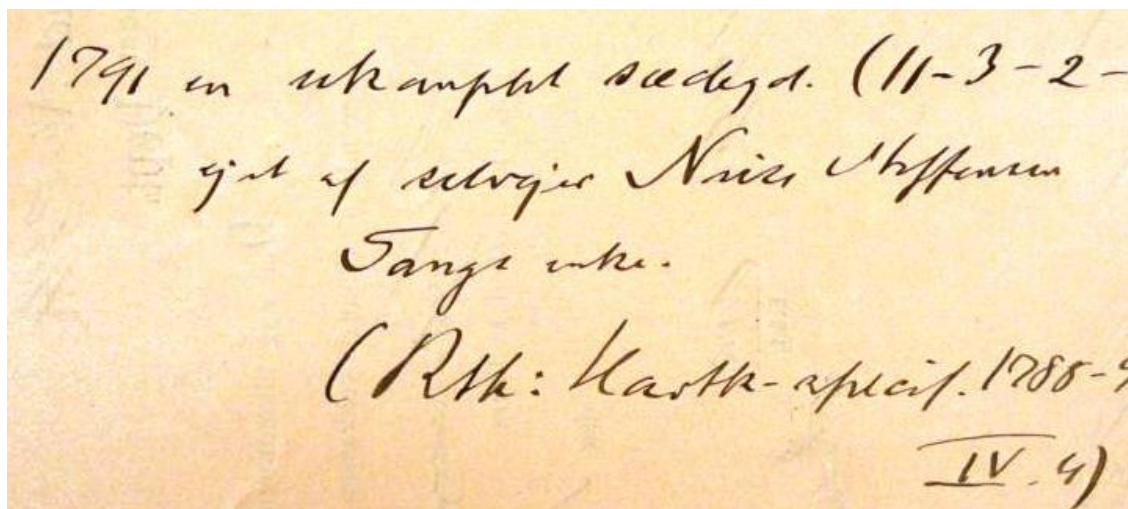 1791 en ukomplet sædegd. (11-3-2-
ejet af selvejer Niels Steffensen
Tangs enke.
(Rtk: Hartk-specif. 1788-9
IV. 4)